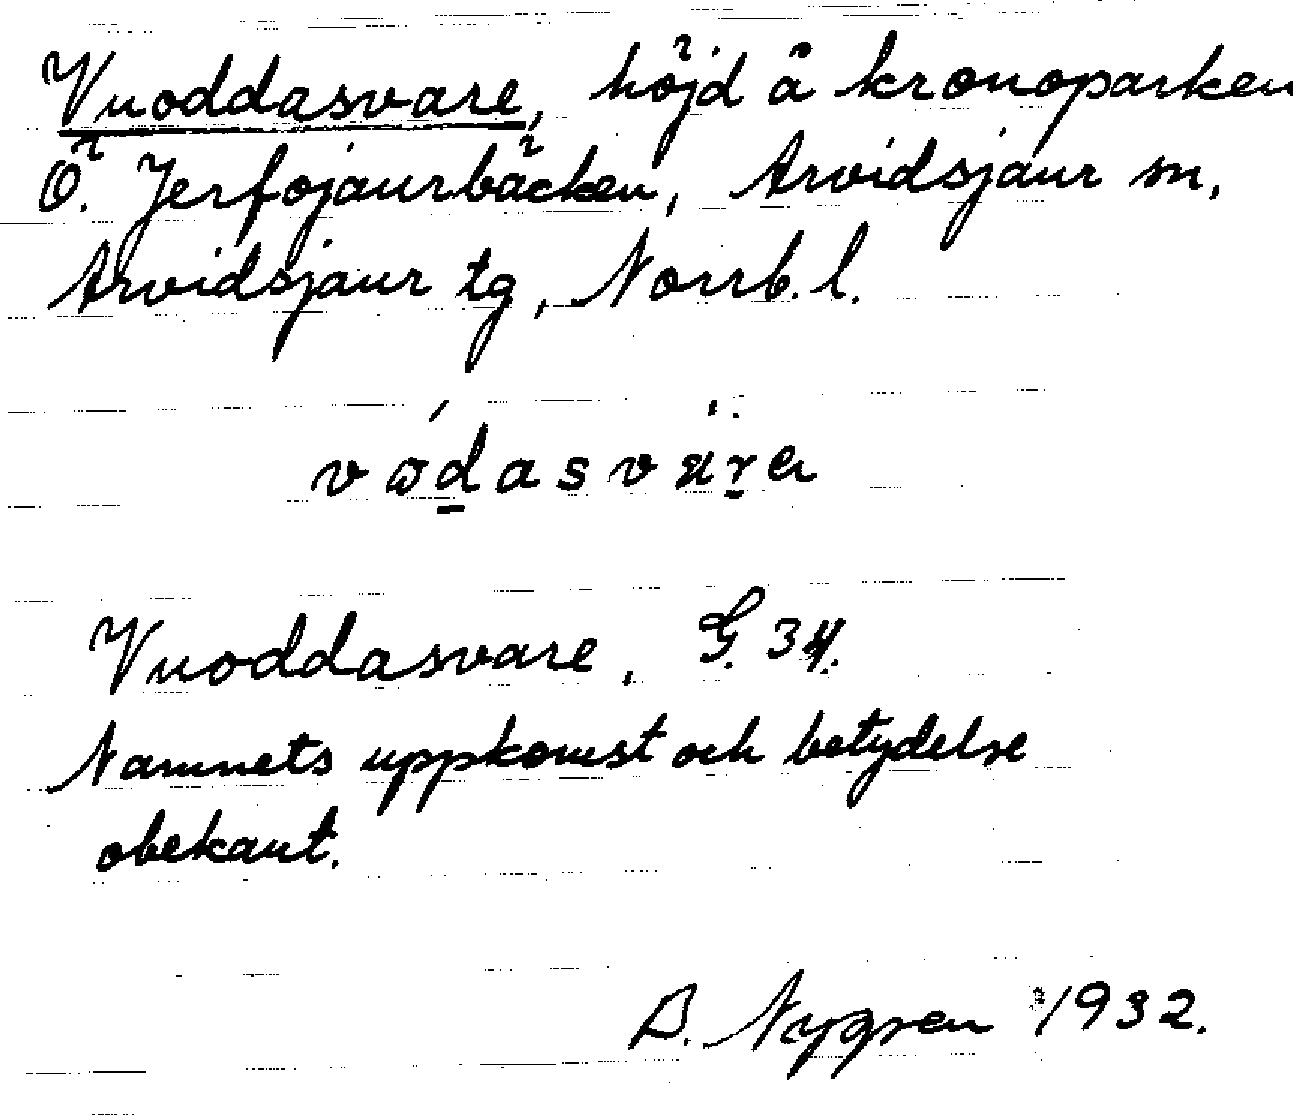 Vuoddasvare, höjd å kronoparken
Ö. Jerfojaurbäcken, Arvidsjaur sn,
Arvidsjaur tg, Norrb. l.
Vuoddasvare, G. 34.
Namnets uppkomst och betydelse
obekant.
B. Nygren 1932.